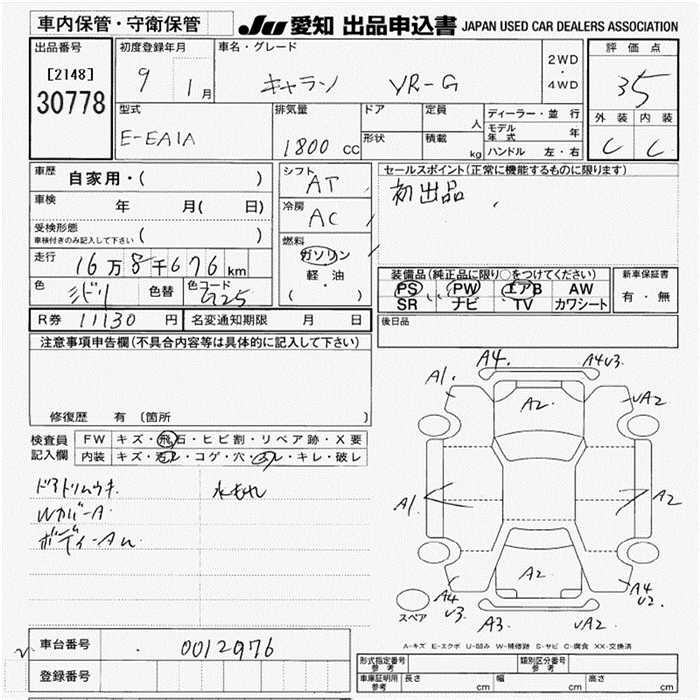 車内保管・守衛保管
JU 愛知 出品申込書 JAPAN USED CAR DEALERS ASSOCIATION
出品番号
[2148]
30778
初度登録年月
9 1月
車名・グレード
キャラン VR-G
2WD
・
4WD
評価点
35
外装 内装
C C
型式
E-EA1A
排気量
1800 cc
ドア
形状
定員
人
積載
kg
ディーラー・並行
モデル年式 年
ハンドル 左・右
車歴
自家用・( )
車検
年 月( 日)
受検形態
車検付きのみ記入して下さい ( )
走行
16万8千676km
色
ミドリ
色替
色コード
G25
シフト
AT
冷房
AC
燃料
ガソリン
軽・油
( ・ )
セールスポイント(正常に機能するものに限ります)
初出品
装備品(純正品に限り○をつけてください)
PS PW エアB AW
SR ナビ TV カワシート
新車保証書
有・無
R券 11130 円
名変通知期限 月 日
後日品
注意事項申告欄(不具合内容等は具体的に記入して下さい)
修復歴 有 (箇所
検査員
記入欄
FW キズ・飛石・ヒビ割・リペア跡・X要
内装 キズ・汚レ・コゲ・穴・スレ・キレ・破レ
ドアトリムウキ
水もれ
WカバーA
ボディーAU
A4. A4U3.
A1. UA2
A2
A1 A2
A2
A4 U3 A4 U2
A3 UA2
スペア
A-キズ E-エクボ U-凹み W-補修跡 S-サビ C-腐食 XX-交換済
車台番号
0012976
登録番号
形式指定番号
参考
類別区分番号
参考
車庫証明用
参考
長さ cm 幅 cm 高さ cm